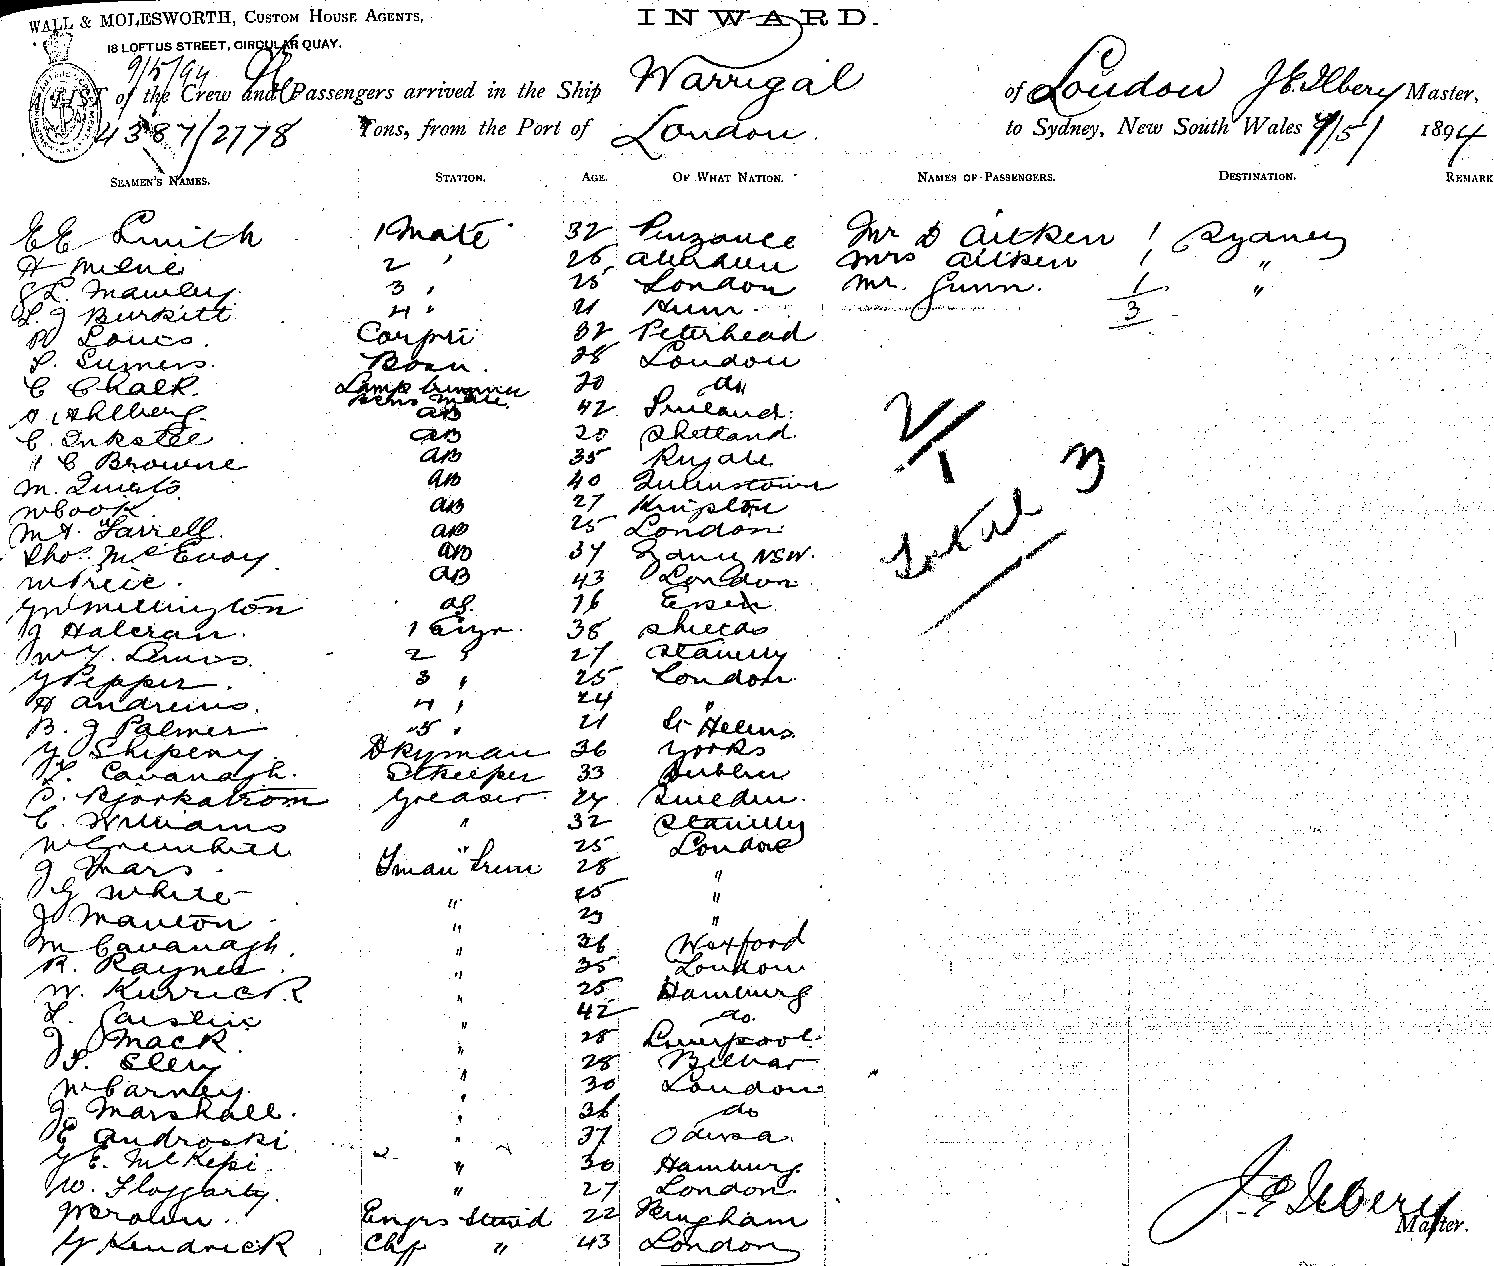 WALL & MOLESWORTH, CUSTOM HOUSE AGENTS,
INWARD.
18 LOFTUS STREET, CIRCULAR QUAY.
9/5/94
A LIST of the Crew and Passengers arrived in the Ship Warrigal of London J E Ilbery Master,
4387/2778 Tons, from the Port of London to Sydney, New South Wales 9/5/ 1894
SEAMEN'S NAMES. STATION. AGE. OF WHAT NATION. NAMES OF PASSENGERS. DESTINATION. REMARK
E E Smith 1 Mate 32 Penzance Mr D Aitken 1 Sydney
A Milne 2 " 26 Aberdeen Mrs Aitken 1 "
L. Mawley 3 " 25 London Mr. Gunn. 1 "
L. J Burkitt 4 " 21 3
Louis. 32 Peterhead
Sumers. Bosn. 28 London
C Chalk. Lamp trimmer 20 do
Ahlberg. AB 42 Finland.
C. Inkster AB 20 Shetland
C Browne AB 35 Rugate
M. AB 40 Queenstown
W Cook AB 27 Kingston
M. Farrell. AB 25 London
Thos. McEvoy AB 37 Sydney NSW.
W Price. AB 43 London
Millington 16 Essex
J Halcran. 1 Engr. 38 Shields
Lewis. 2 " 27
Pepper. 3 " 25 London
A Andrews. 4 " 24 "
B. J Palmer 5 " 21 St Helens
Shipeny Dkyman 36 Yorks
Cavanagh. Stkeeper 33 Dublin
C. Bjorkstrom Greaser 24 Sweden.
C. Williams " 32
W Greenhill " 25 London
J Mars Fman Trim 28 "
G White " 25 "
J Manton " 23 "
M Cavanagh. " 36 Wexford
R. Rayner. " 35 London
W. Kurrick " 25 Hamburg
" 42 do.
J Mack. " 28 Liverpool
" 28
W Carney. " 30 London
J Marshall. " 36 do
E Androski " 37 Odessa.
E. " 30 Hamburg
W. Floggarty. " 27 London.
Brown. Engrs Stwd 22
Kendrick Chf " 43 London
2/1
Total 3
J E Ilbery
Master.